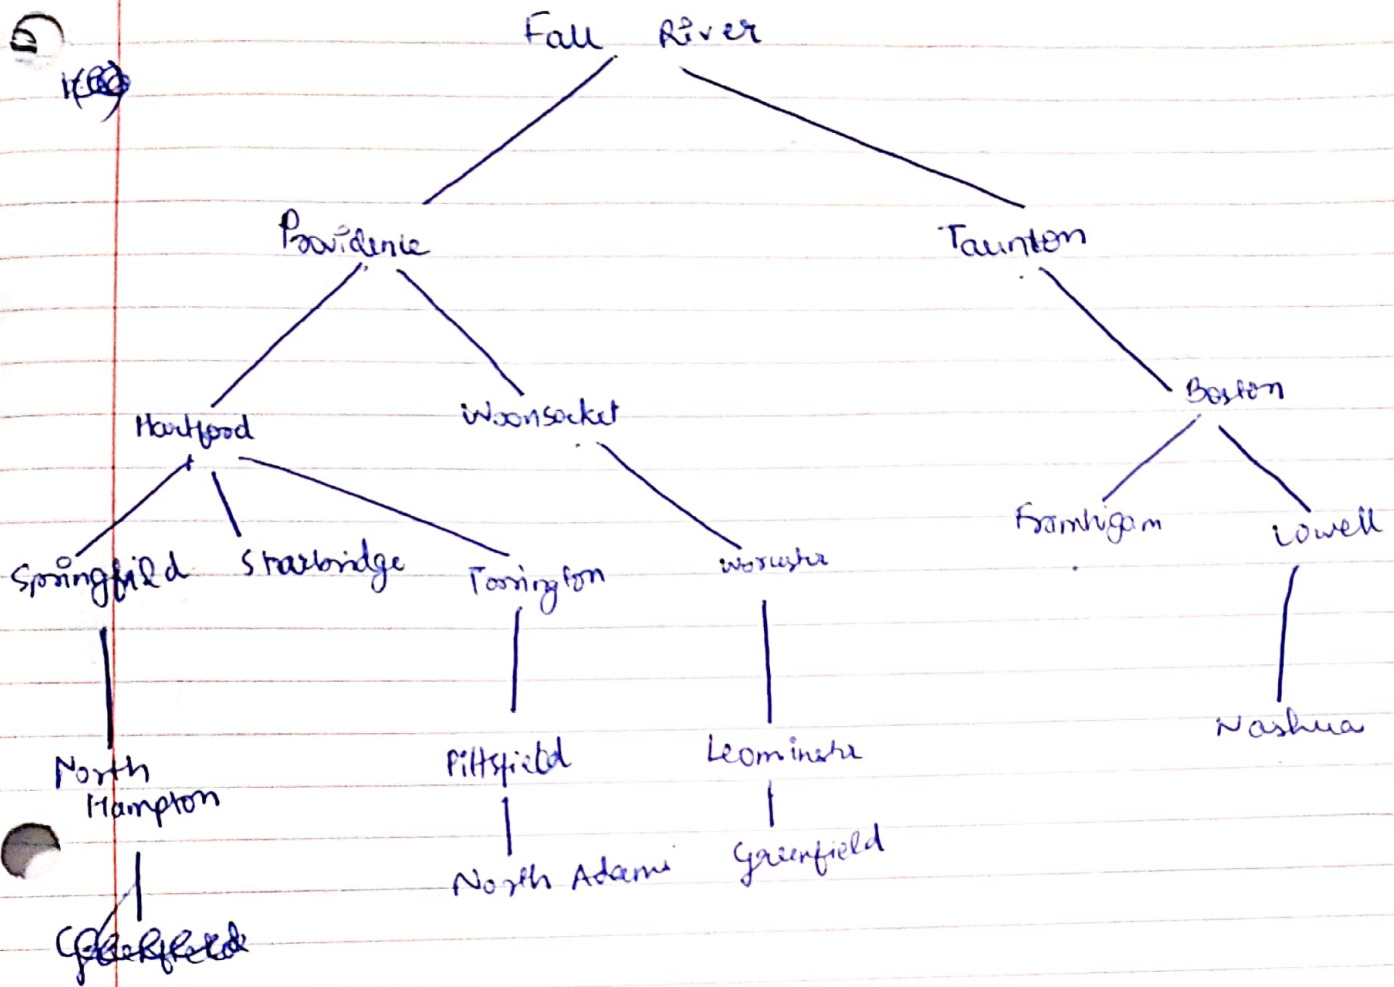 Fall River
Providence
Taunton
Hartford
Woonsocket
Boston
Springfield
Starbridge
Torrington
Worcester
Framhigam
Lowell
North
Hampton
Pittsfield
Leominster
Nashua
North Adams
Greenfield